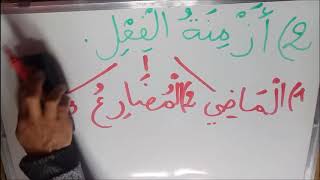 2) أَزْمِنَةُ الْفِعْلِ.
1) الْمَاضِي 2) الْمُضَارِعُ